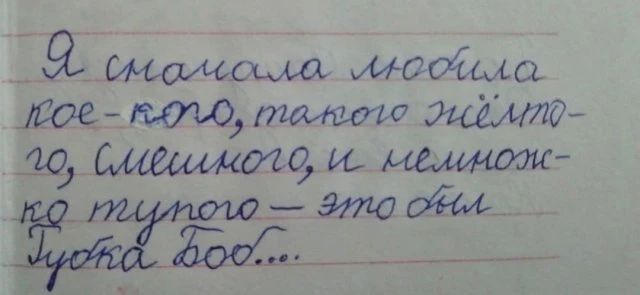 Я сначала любила
кое-кого, такого жёлто-
го, смешного, и немнож-
ко тупого — это был
Губка Боб....